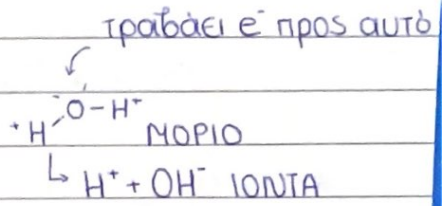 τραβάει e⁻ προς αυτό
⁻O-H⁺
⁺H ΜΟΡΙΟ
↳ H⁺ + OH⁻ ΙΟΝΤΑ